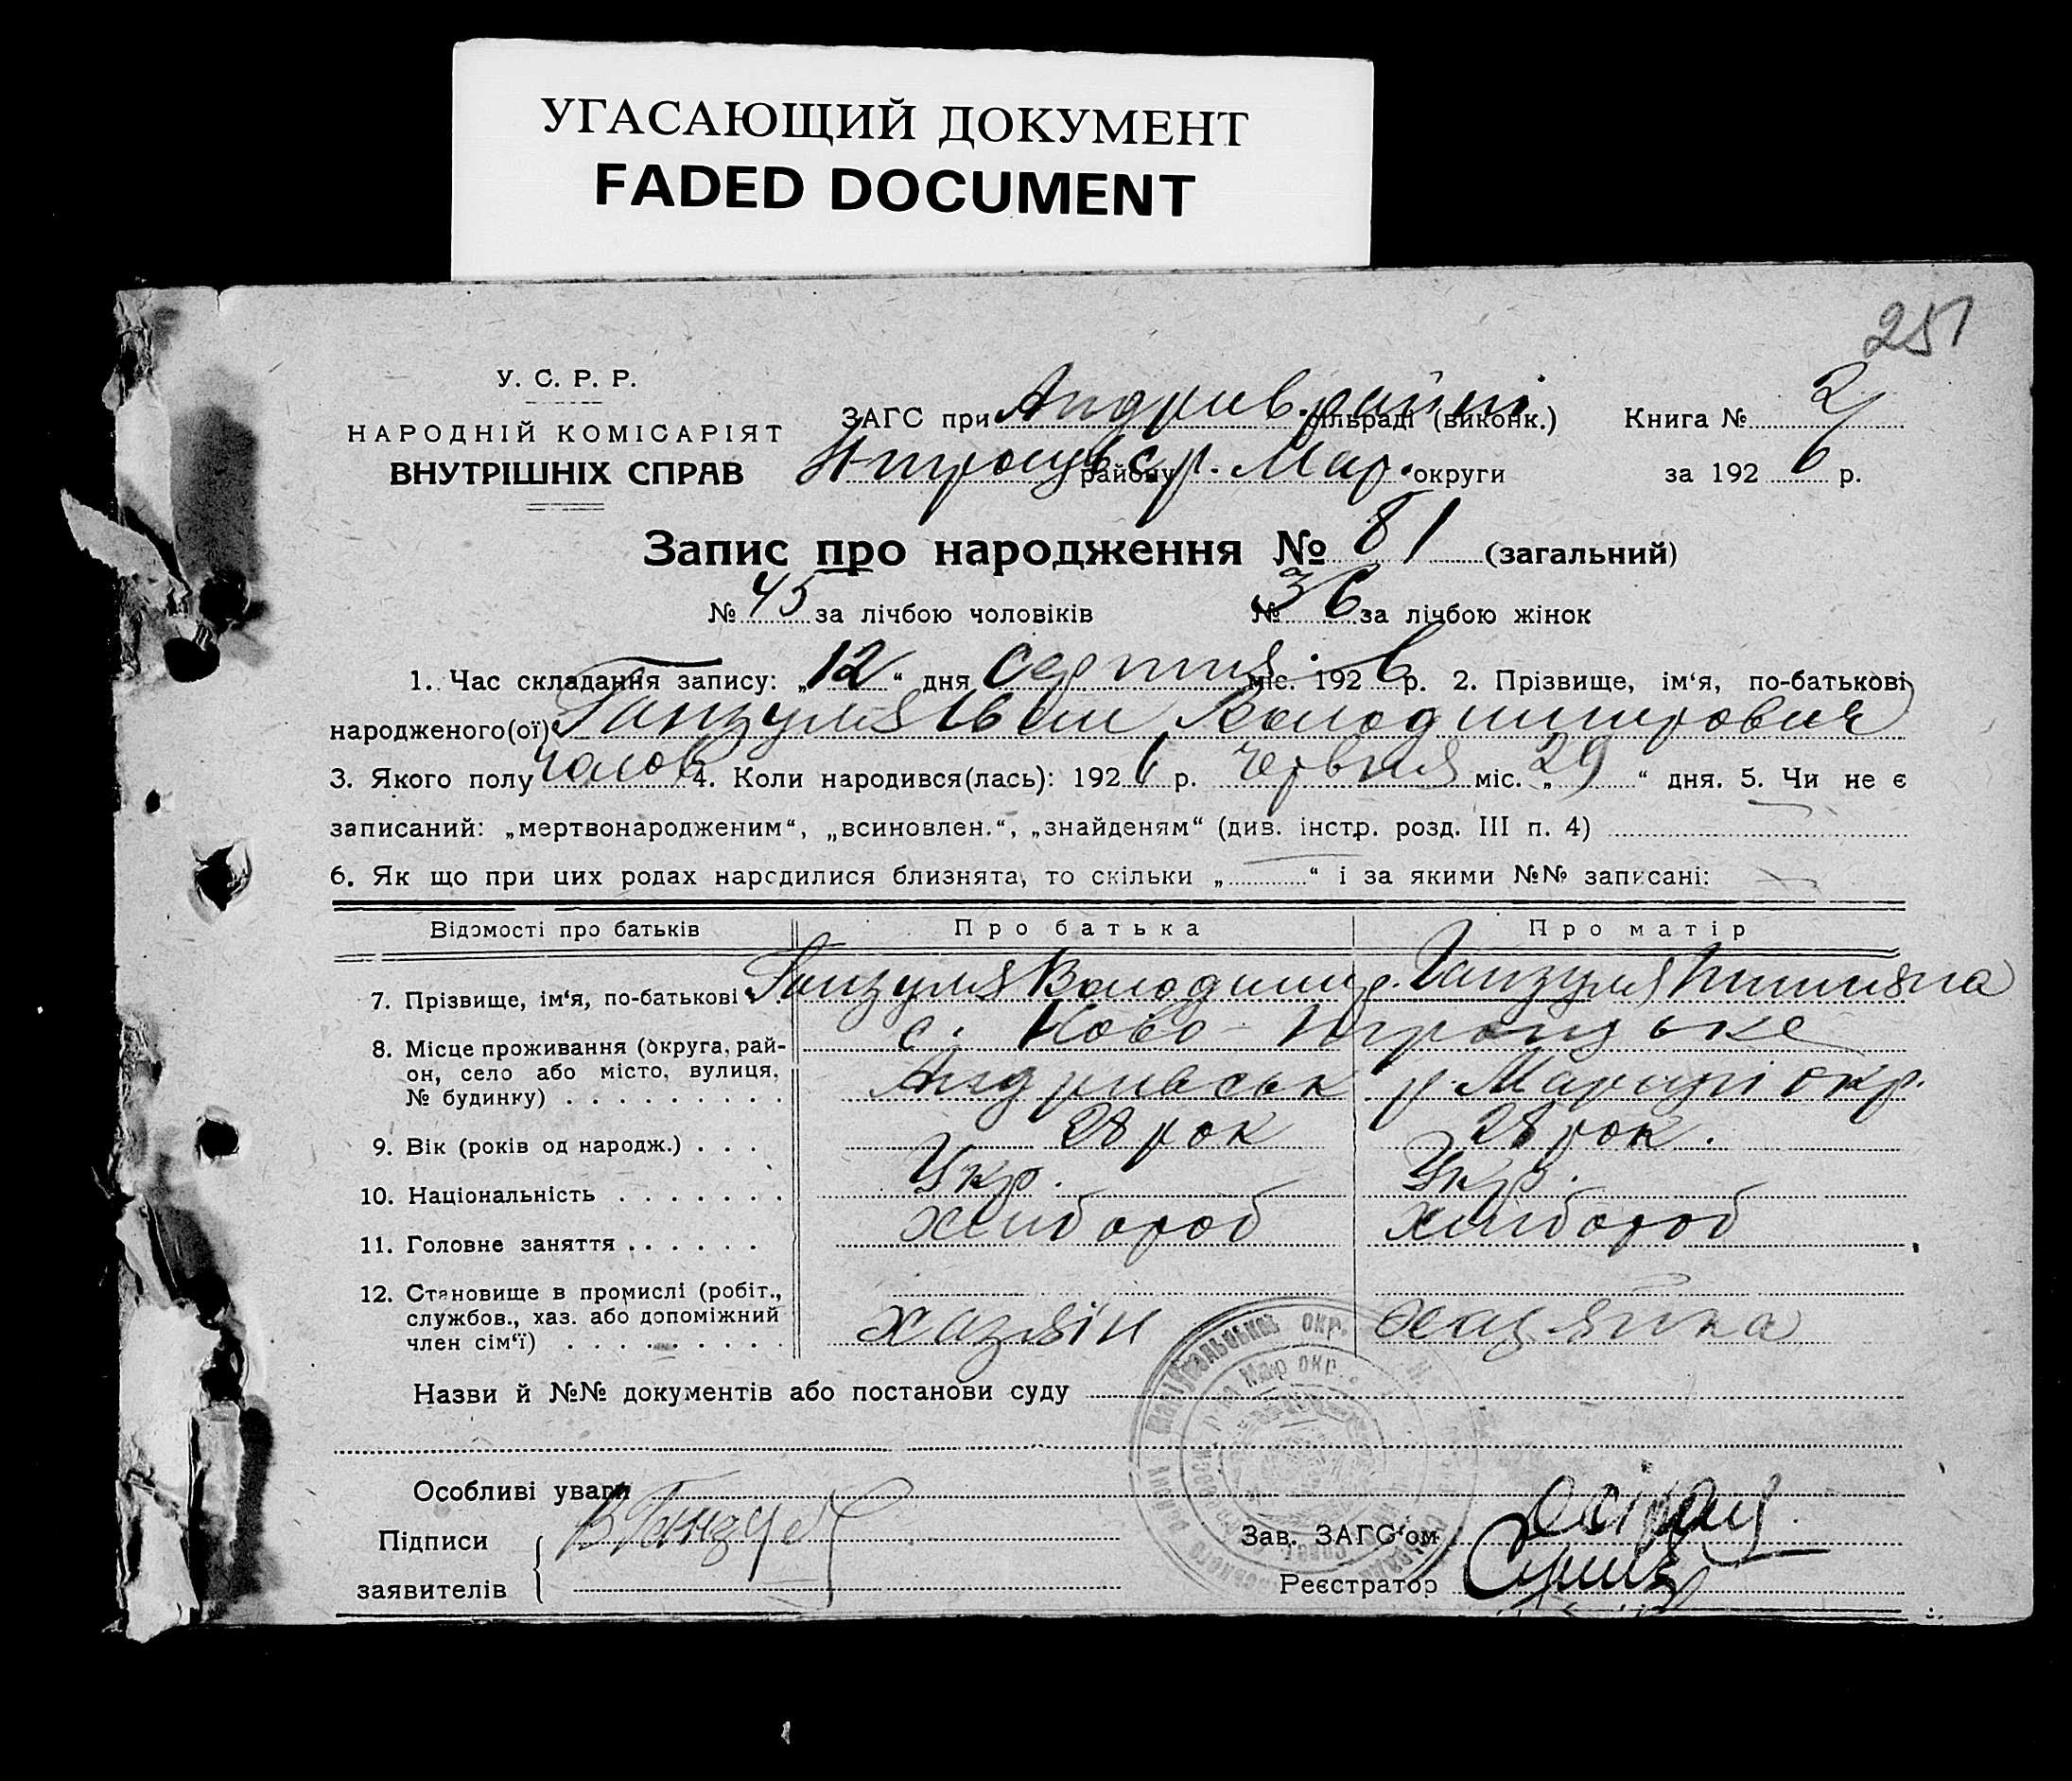 УГАСАЮЩИЙ ДОКУМЕНТ
FADED DOCUMENT
251
У. С. Р. Р.
НАРОДНІЙ КОМІСАРІЯТ
ВНУТРІШНІХ СПРАВ
ЗАГС при Андрив. сільраді (виконк.)
району р. Мар. округи
Книга № 2
за 1926 р.
Запис про народження № 81 (загальний)
№ 45 за лічбою чоловіків № 36 за лічбою жінок
1. Час складання запису: „12“ дня серпня міс. 1926 р. 2. Прізвище, ім‘я, по-батькові
народженого(ої) Ганзуля Іван Володимирович
3. Якого полу чолов 4. Коли народився(лась): 1926 р. червня міс. „29“ дня. 5. Чи не є
записаний: „мертвонародженим“, „всиновлен.“, „знайденям“ (див. інстр. розд. III п. 4)
6. Як що при цих родах народилися близнята, то скільки „ “ і за якими №№ записані:
Відомості про батьків Про батька Про матір
7. Прізвище, ім‘я, по-батькові Ганзуля Володимир. Ганзуля
8. Місце проживання (округа, рай-
он, село або місто, вулиця,
№ будинку)
с. Ново-Троицьке
Андривськ р. Маріупі окр.
9. Вік (років од народж.) 28 рок 28 рок.
10. Національність Укр. Укр.
11. Головне заняття хлибороб хлибороб
12. Становище в промислі (робіт.,
службов., хаз. або допоміжний
член сім‘ї) хазяїн хазяйка
Назви й №№ документів або постанови суду
Особливі уваги
Підписи
заявителів
В Ганзуля
Зав. ЗАГС‘ом
Реєстратор